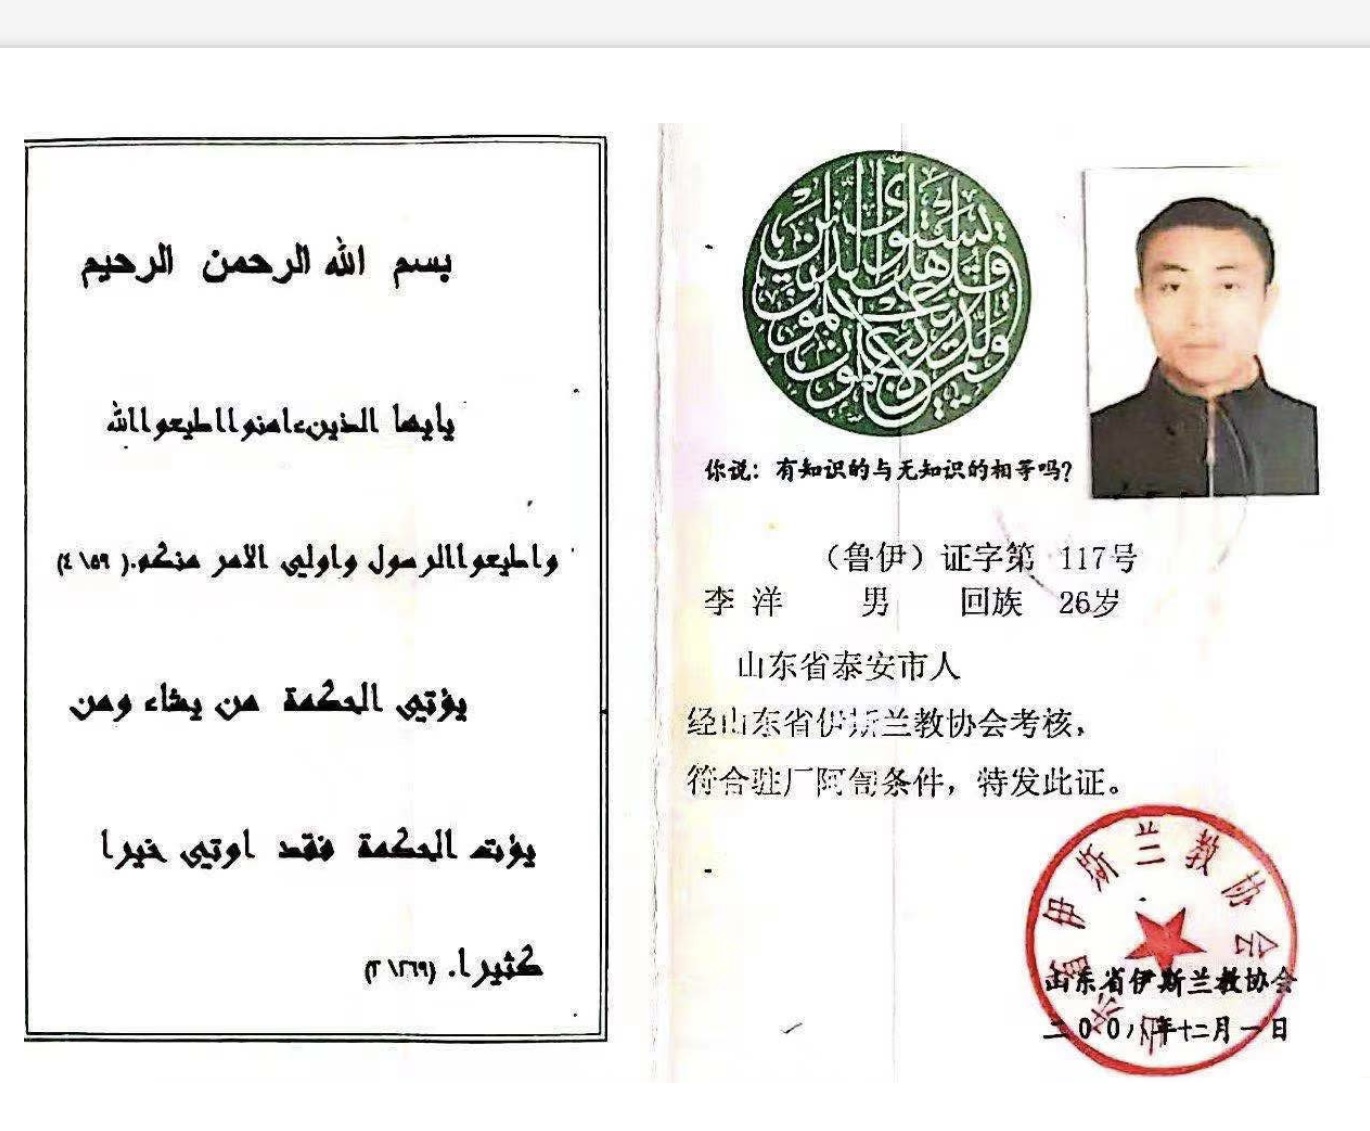 بسم الله الرحمن الرحيم
يايها الذينءامنوااطيعواالله
واطيعواالرسول واولي الامر منكم.( ٤\٥٩)
يؤتي الحكمة من يشاء ومن
يؤت الحكمة فقد اوتي خيرا
كثيرا. (٢\٢٦٩)
قل هل يستوي الذين يعلمون والذين لا يعلمون
你说：有知识的与无知识的相等吗？
（鲁伊）证字第 117号
李 洋 男 回族 26岁
山东省泰安市人
经山东省伊斯兰教协会考核，
符合驻厂阿訇条件，特发此证。
山东省伊斯兰教协会
山东省伊斯兰教协会
二00八年十二月一日